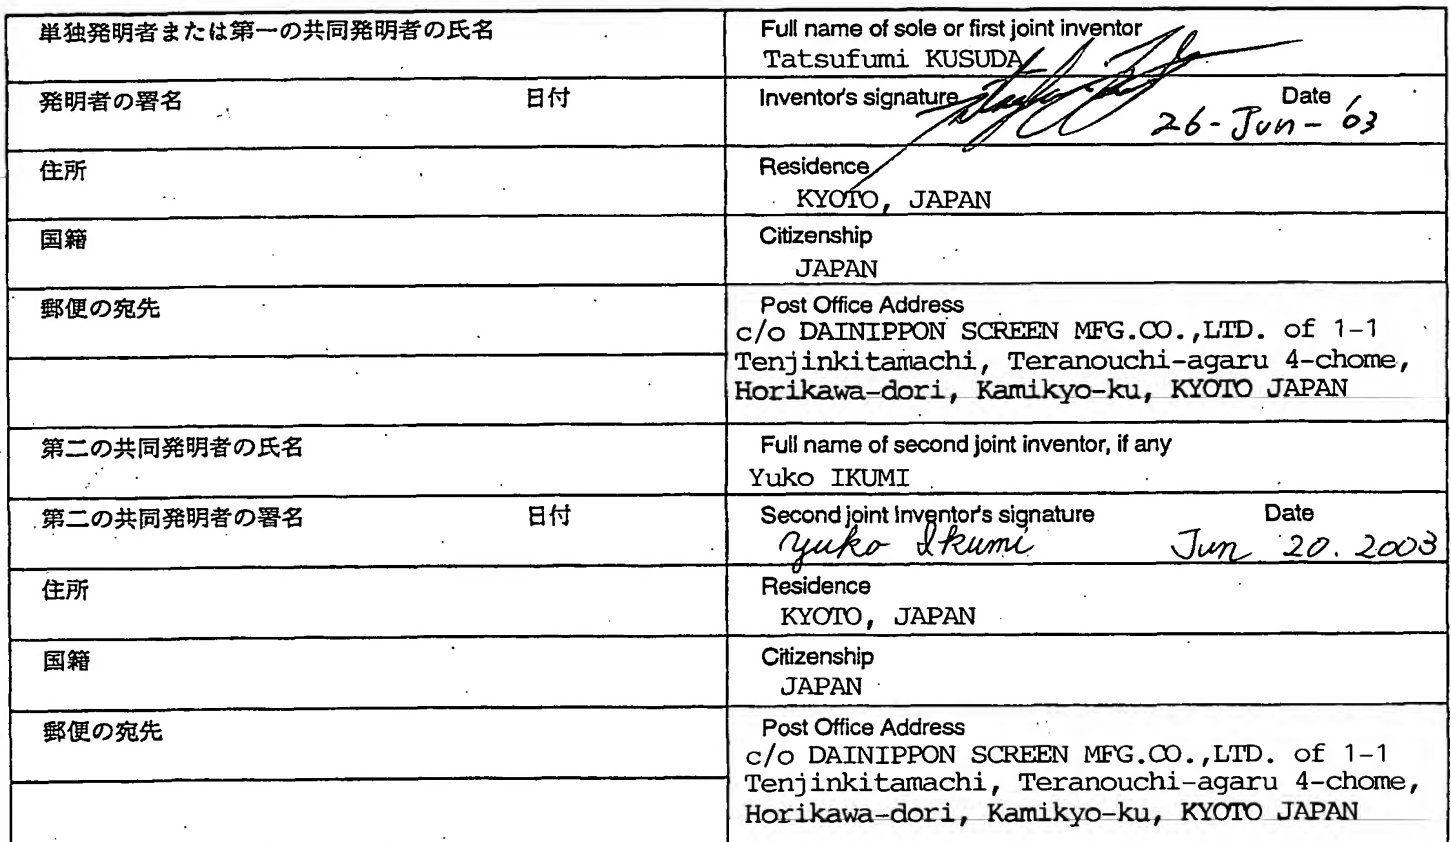 単独発明者または第一の共同発明者の氏名
Full name of sole or first joint inventor
Tatsufumi KUSUDA
発明者の署名 日付
Inventor's signature Date
26-Jun-'03
住所
Residence
KYOTO, JAPAN
国籍
Citizenship
JAPAN
郵便の宛先
Post Office Address
c/o DAINIPPON SCREEN MFG.CO.,LTD. of 1-1
Tenjinkitamachi, Teranouchi-agaru 4-chome,
Horikawa-dori, Kamikyo-ku, KYOTO JAPAN
第二の共同発明者の氏名
Full name of second joint inventor, if any
Yuko IKUMI
第二の共同発明者の署名 日付
Second joint Inventor's signature Date
Yuko Ikumi Jun 20. 2003
住所
Residence
KYOTO, JAPAN
国籍
Citizenship
JAPAN
郵便の宛先
Post Office Address
c/o DAINIPPON SCREEN MFG.CO.,LTD. of 1-1
Tenjinkitamachi, Teranouchi-agaru 4-chome,
Horikawa-dori, Kamikyo-ku, KYOTO JAPAN